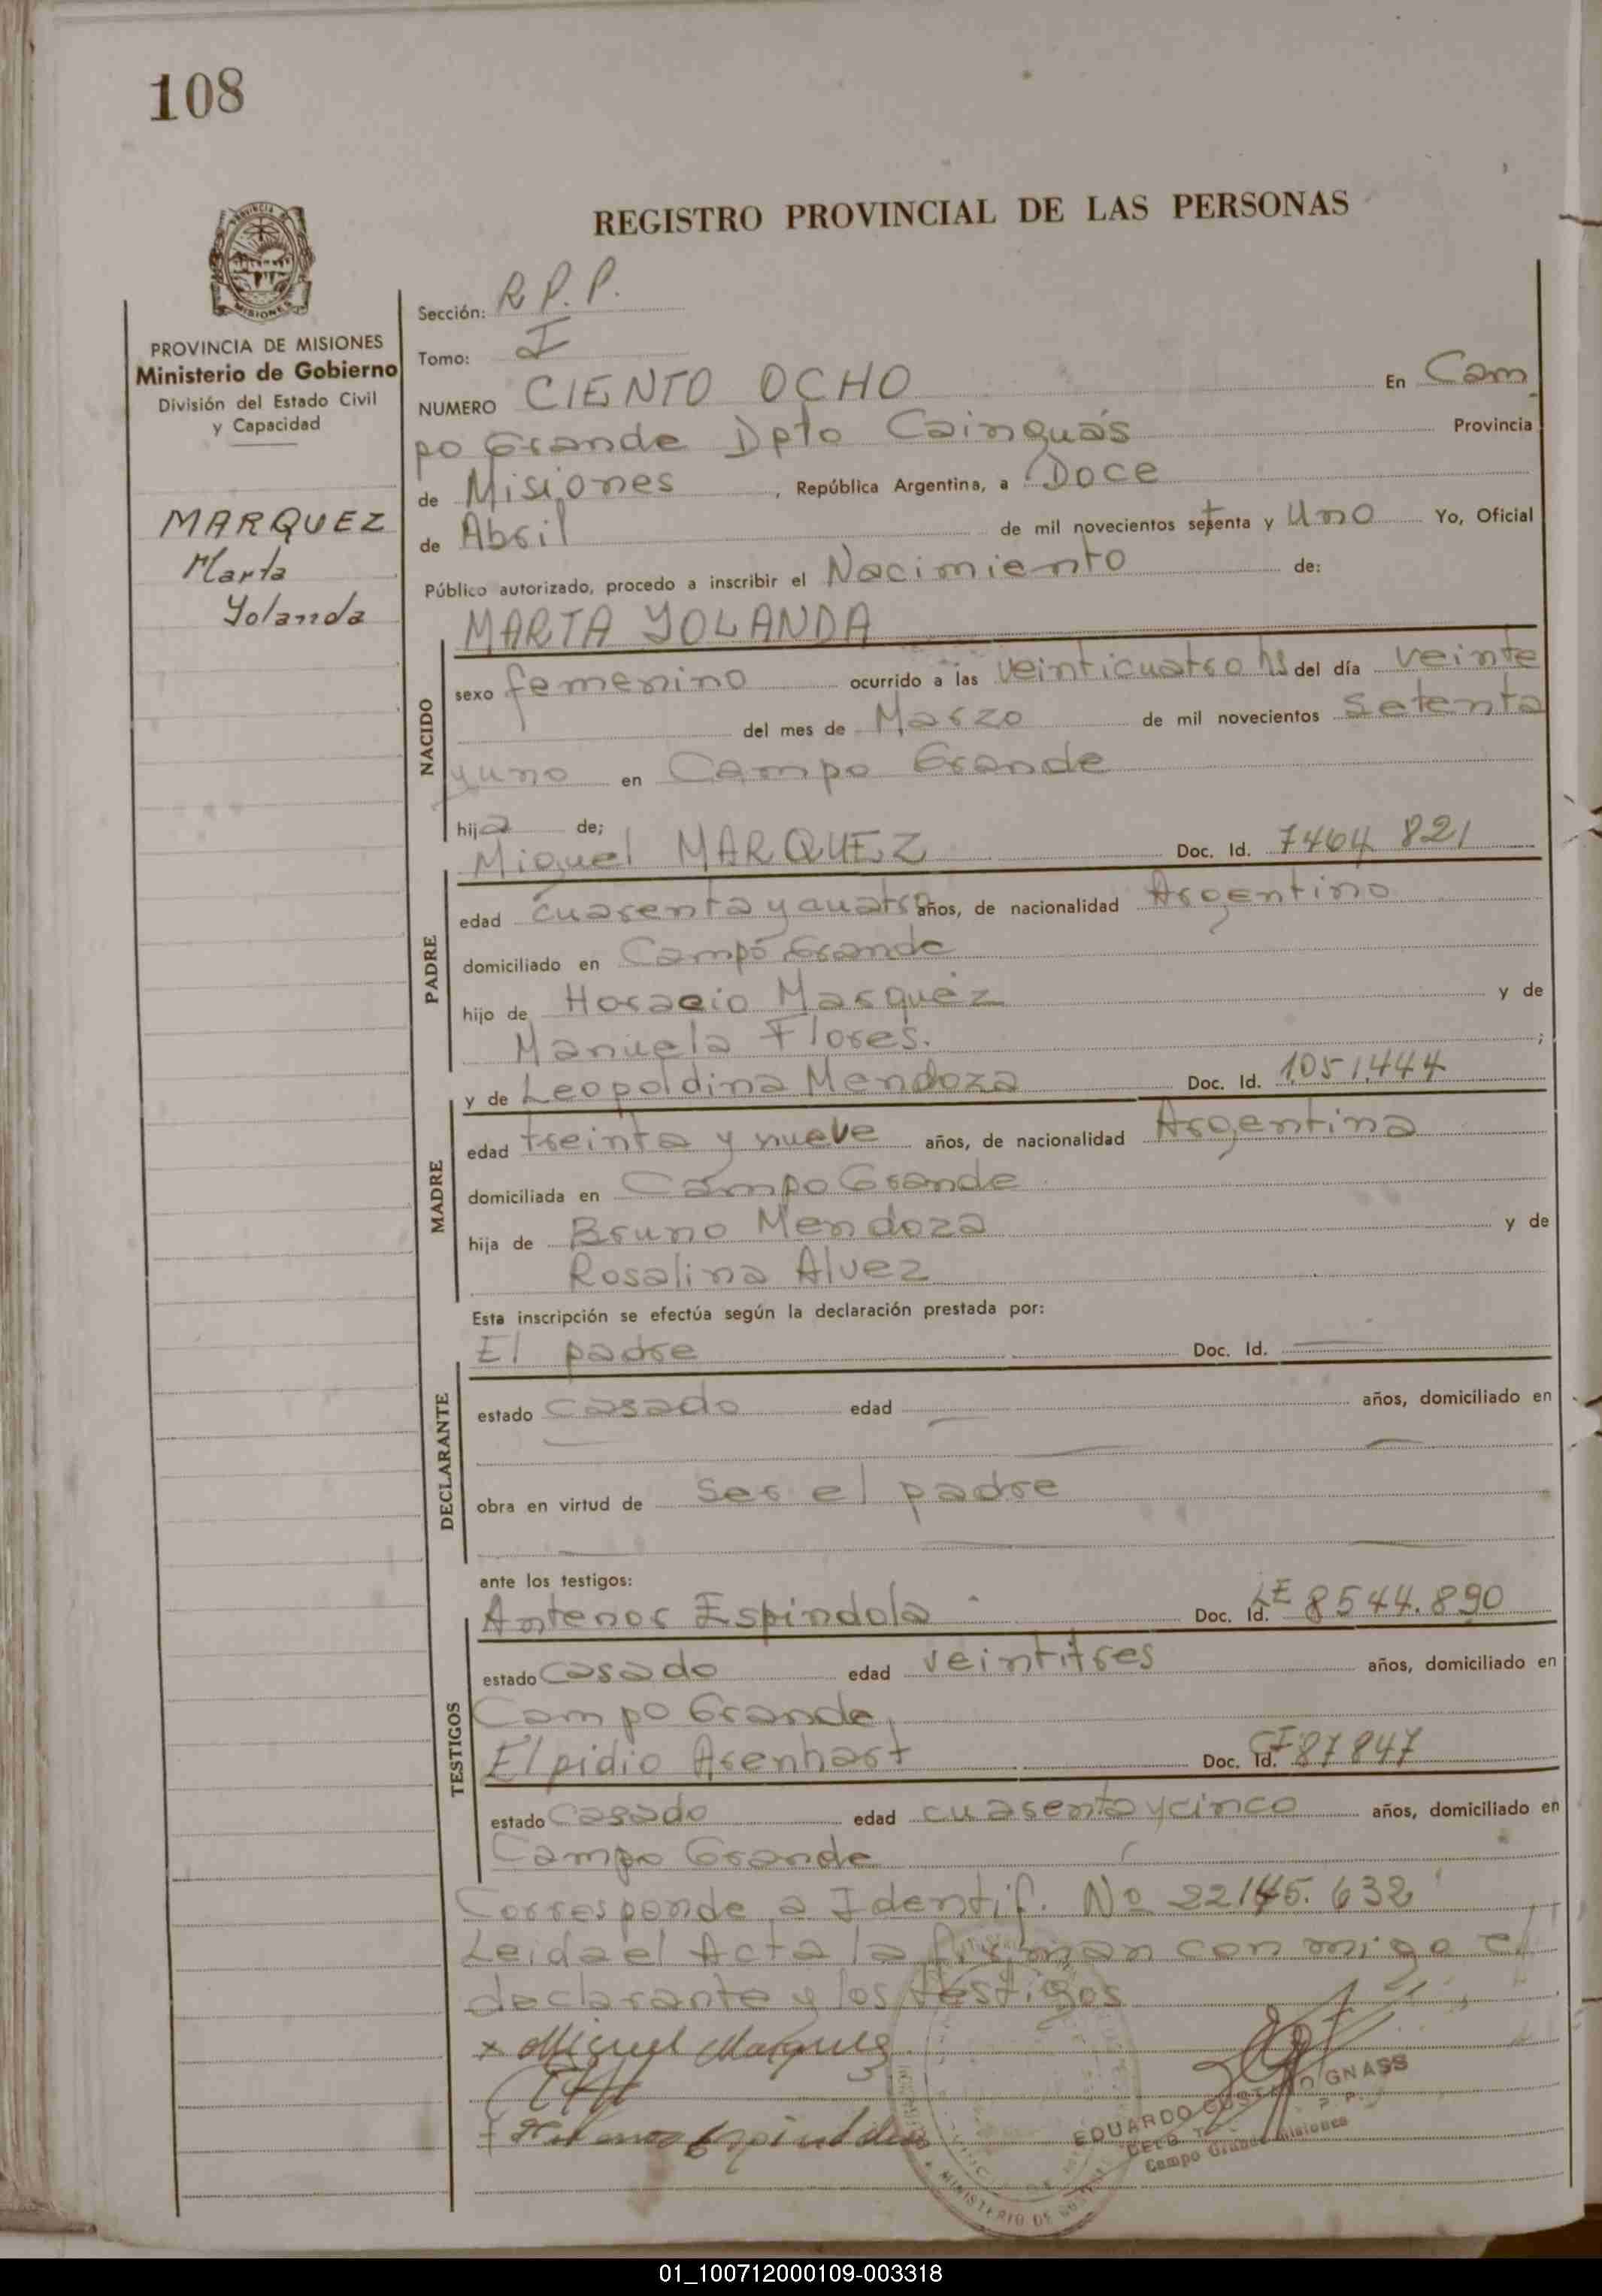 108
REGISTRO PROVINCIAL DE LAS PERSONAS
PROVINCIA DE
MISIONES
PROVINCIA DE MISIONES
Ministerio de Gobierno
División del Estado Civil
y Capacidad
MARQUEZ
Marta
Yolanda
Sección: R P. P.
Tomo: I
NUMERO CIENTO OCHO En Cam
po Grande Dpto Cainguás Provincia
de Misiones, República Argentina, a Doce
de Abril de mil novecientos setenta y Uno Yo, Oficial
Público autorizado, procedo a inscribir el Nacimiento de:
MARTA YOLANDA
NACIDO
sexo femenino ocurrido a las veinticuatro hs del día veinte
del mes de Marzo de mil novecientos setenta
y uno en Campo Grande
hija de;
Miguel MARQUEZ Doc. Id. 7464 821
PADRE
edad cuarenta y cuatro años, de nacionalidad Argentino
domiciliado en Campo Grande
hijo de Horacio Marquez y de
Manuela Flores. ;
y de Leopoldina Mendoza Doc. Id. 1.051.444
MADRE
edad treinta y nueve años, de nacionalidad Argentina
domiciliada en Campo Grande
hija de Bruno Mendoza y de
Rosalina Alvez
Esta inscripción se efectúa según la declaración prestada por:
El padre Doc. Id.
DECLARANTE
estado casado edad años, domiciliado en
obra en virtud de ser el padre
ante los testigos:
Antenor Espindola Doc. Id. LE 8544.890
TESTIGOS
estado casado edad veintitres años, domiciliado en
Campo Grande
Elpidio Arenhart Doc. Id. CI 87847
estado casado edad cuarenta y cinco años, domiciliado en
Campo Grande
Corresponde a Identif. Nº 22.145.632
Leida el Acta la firman con migo el
declarante y los testigos
x Miguel Marquez
Espindola
EDUARDO GUSTAVO GNASS
Campo Grande Misiones
MINISTERIO DE
01_100712000109-003318